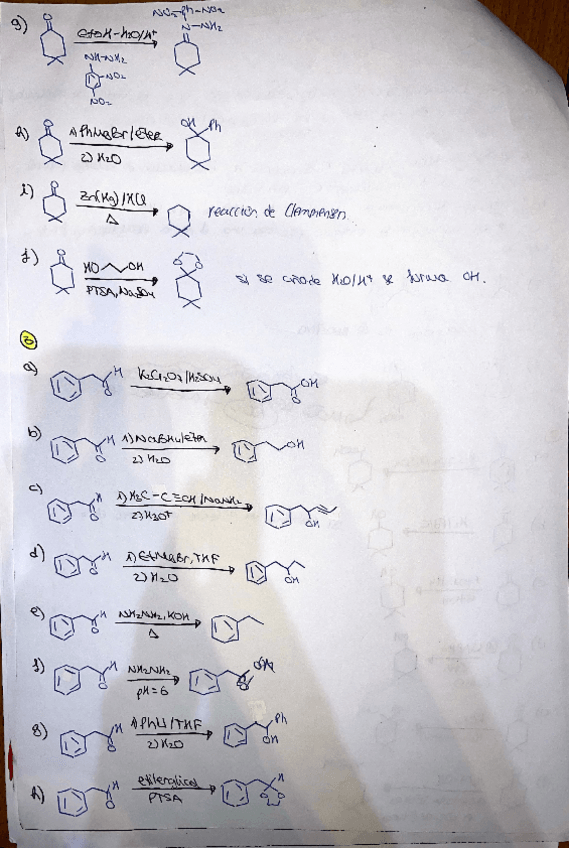 NO₂-Ph-NO₂
g) O EtOH-H₂O/H⁺ N-NH₂
NH-NH₂
NO₂
NO₂
h) O 1) PhMgBr/eter OH Ph
2) H₂O
i) O Zn(Hg)/HCl reacción de Clemmensen
Δ
j) O HO OH O O si se añade H₂O/H⁺ se forma OH.
PTSA, Na₂SO₄
3
a) H O K₂Cr₂O₇/H₂SO₄ OH O
b) H O 1) NaBH₄/eter OH
2) H₂O
c) H O 1) H₃C-C≡CH/NaNH₂ OH
2) H₃O⁺
d) H O 1) EtMgBr, THF OH
2) H₂O
e) H O NH₂NH₂, KOH
Δ
f) H O NH₂NH₂
pH=6
g) H O 1) PhLi/THF Ph OH
2) H₂O
h) H O etilenglicol H O O
PTSA